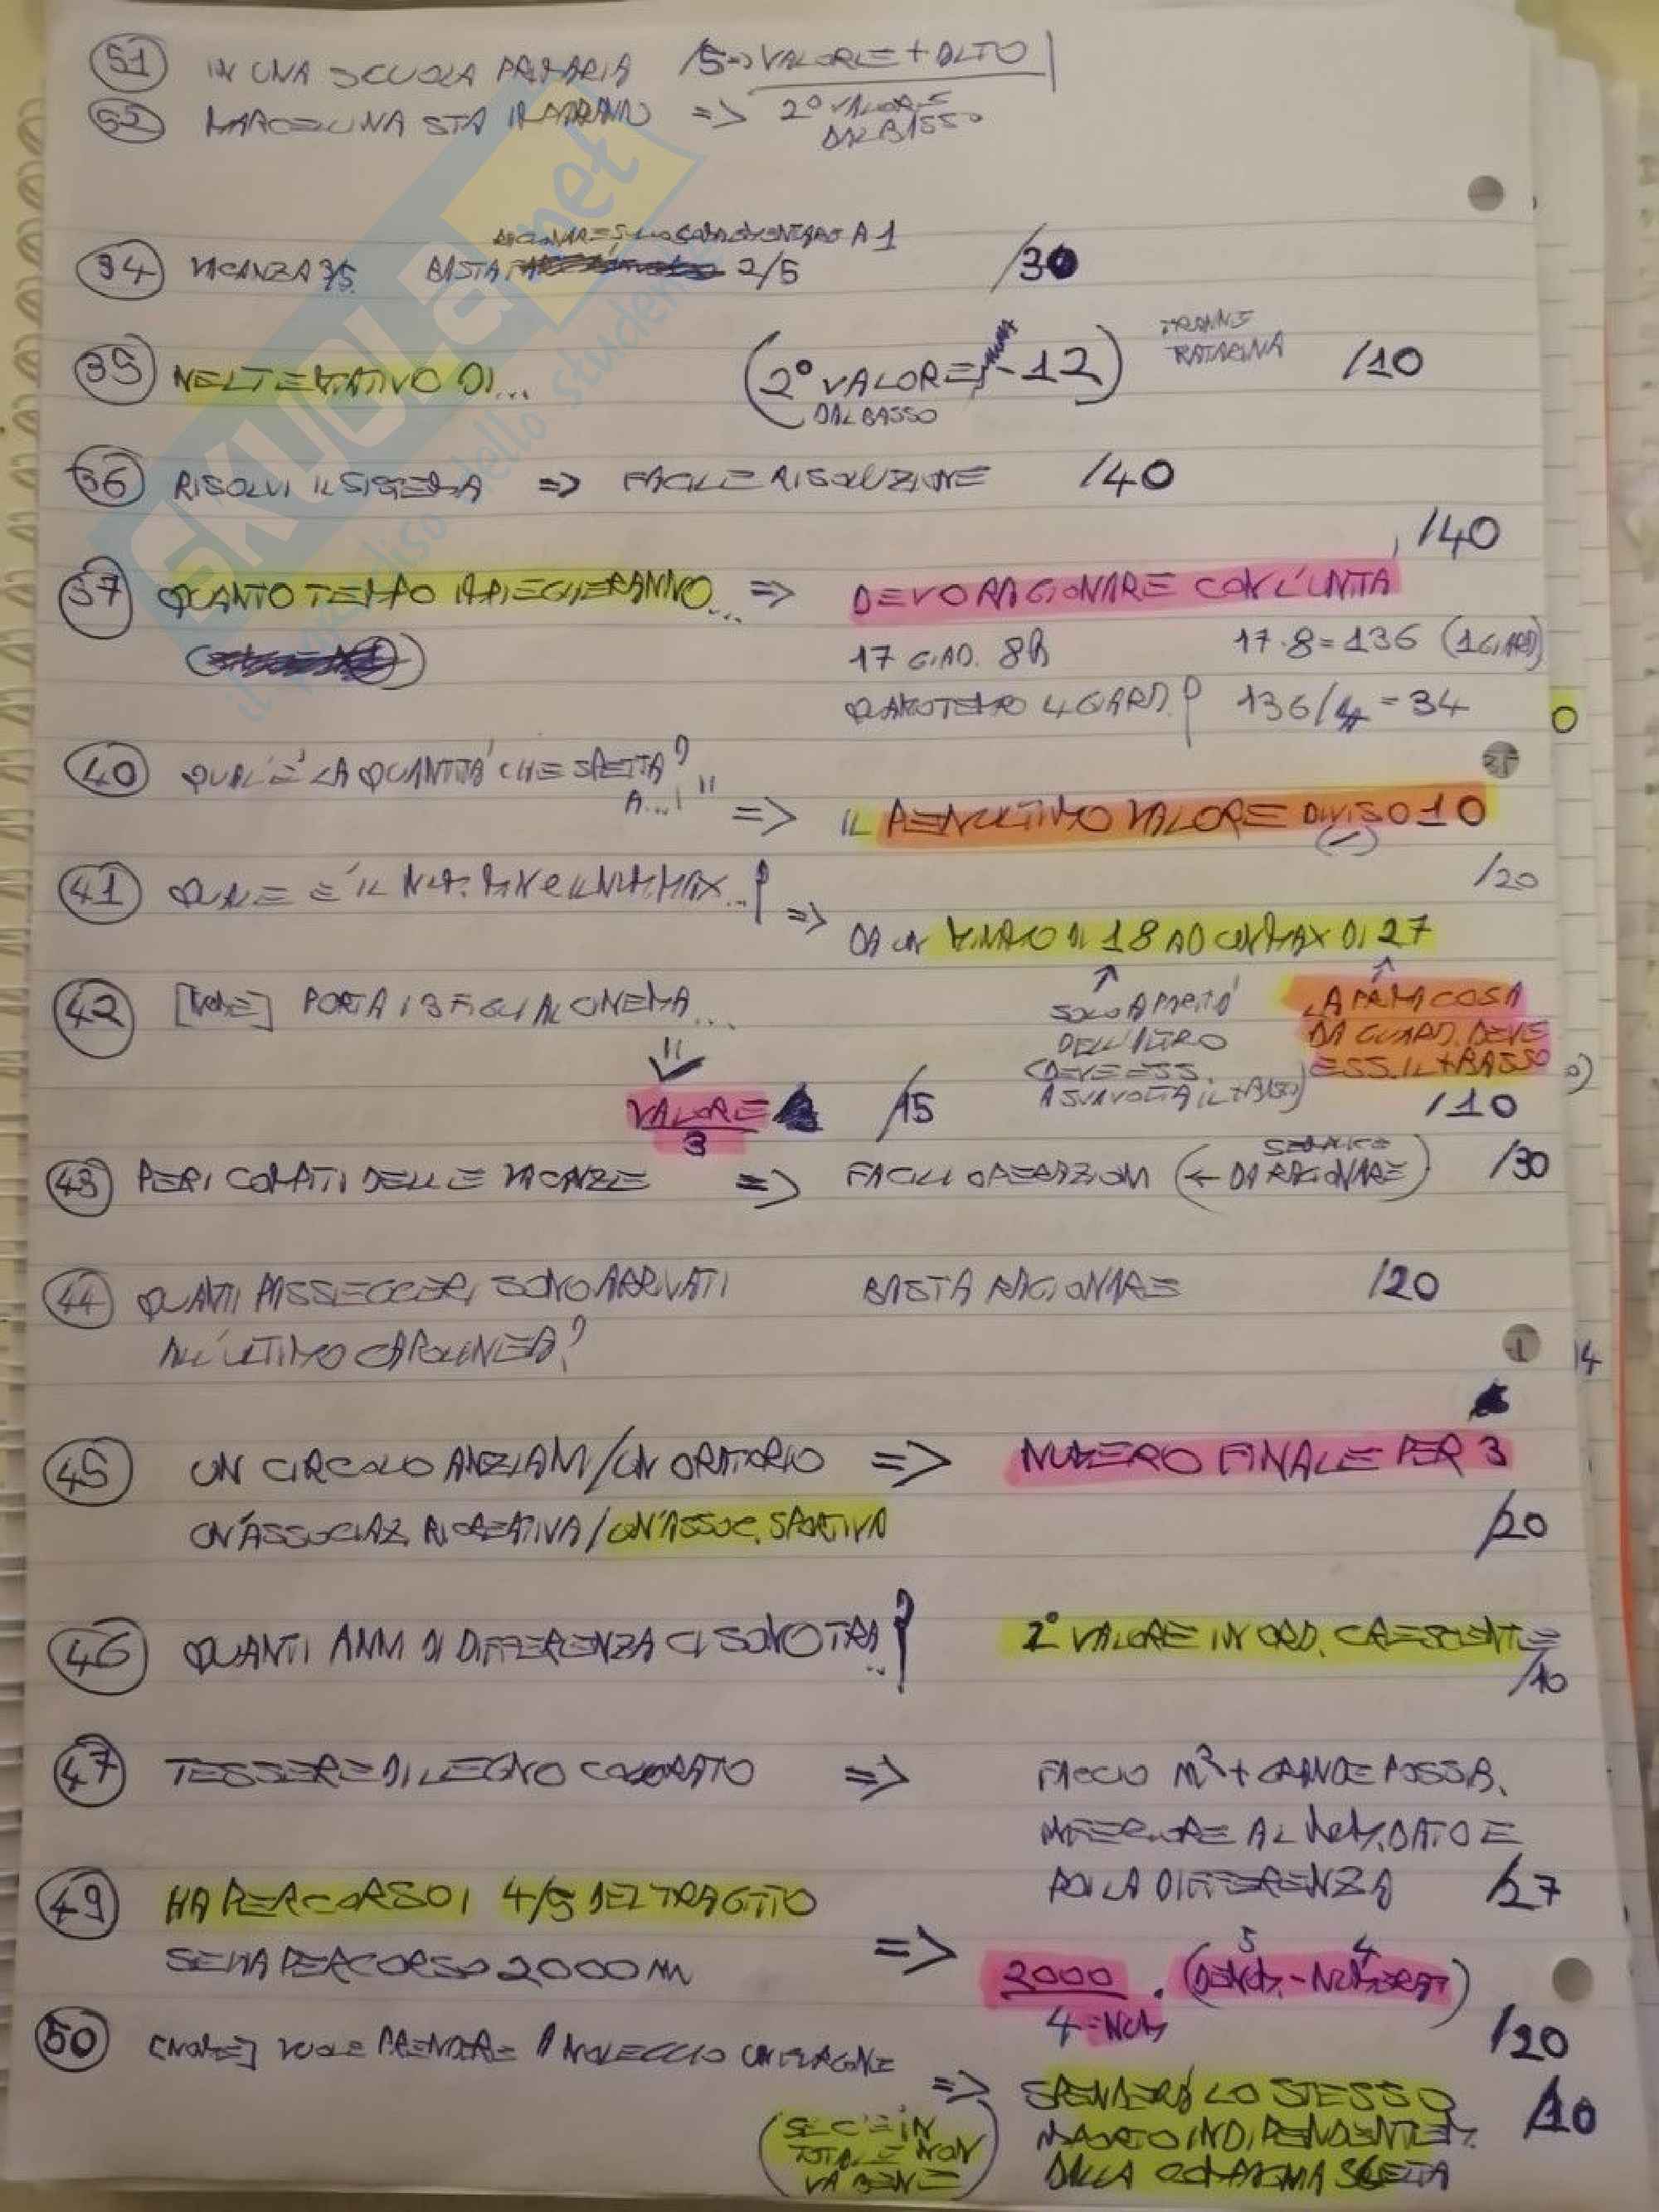 51 IN UNA SCUOLA PRIMARIA /5=> VALORE + ALTO
52 MARCELLINA STA => 2° VALORE
DAL BASSO
SKUOLA.net
il paradiso dello studente
A 1
34 VACANZA 3/5 BASTA 2/5 /30
35 NEL TENTATIVO DI... (2° VALORE - 12) TRANNE
DAL BASSO /10
36 RISOLVI IL SISTEMA => FACILE RISOLUZIONE /40
/40
37 QUANTO TEMPO IMPIEGHERANNO... => DEVO RAGIONARE CON L'UNITÀ
17 GIARD. 8h 17·8=136 (1 GIARD)
QUANTO TEMPO 4 GIARD.? 136/4=34
40 QUAL'È LA QUANTITÀ CHE SPETTA?
A...!" => IL PENULTIMO VALORE DIVISO 10
(/)
/20
41 QUALE È IL NUM. MIN E IL NUM. MAX...? =>
DA UN MINIMO DI 18 AD UN MAX DI 27
42 [NOME] PORTA I 3 FIGLI AL CINEMA...
SOLO A PARITÀ
DELL'ALTRO
(DEVE ESS.
A SUA VOLTA IL + BASSO)
LA PRIMA COSA
DA GUARD. DEVE
ESS. IL + BASSO
/10
VALORE
3
/15
43 PER I COMPITI DELLE VACANZE => FACILI OPERAZIONI (<- SEMPLICE
DA RAGIONARE) /30
44 QUANTI PASSEGGERI SONO ARRIVATI BASTA RAGIONARE /20
ALL'ULTIMO CAPOLINEA?
45 UN CIRCOLO ANZIANI/UN ORATORIO => NUMERO FINALE PER 3
UN'ASSOCIAZ. RICREATIVA/UN'ASSOC. SPORTIVA /20
46 QUANTI ANNI DI DIFFERENZA CI SONO TRA..? 2° VALORE IN ORD. CRESCENTE
/10
47 TESSERE DI LEGNO COLORATO => FACCIO m² + GRANDE POSSIB.
INFERIORE AL NUM. DATO E
POI LA DIFFERENZA /27
49 HA PERCORSO I 4/5 DEL TRAGITTO
SE HA PERCORSO 2000 m => 2000 · (DENOM. - NUMERAT)
5 4
4=NUM
/20
50 [NOME] VUOLE PRENDERE A NOLEGGIO UN FURGONE
=> SPENDERÀ LO STESSO /10
INDIPENDENTEM.
DALLA COMPAGNIA SCELTA
(SE C'È IN
TOTALE NON
VA BENE)